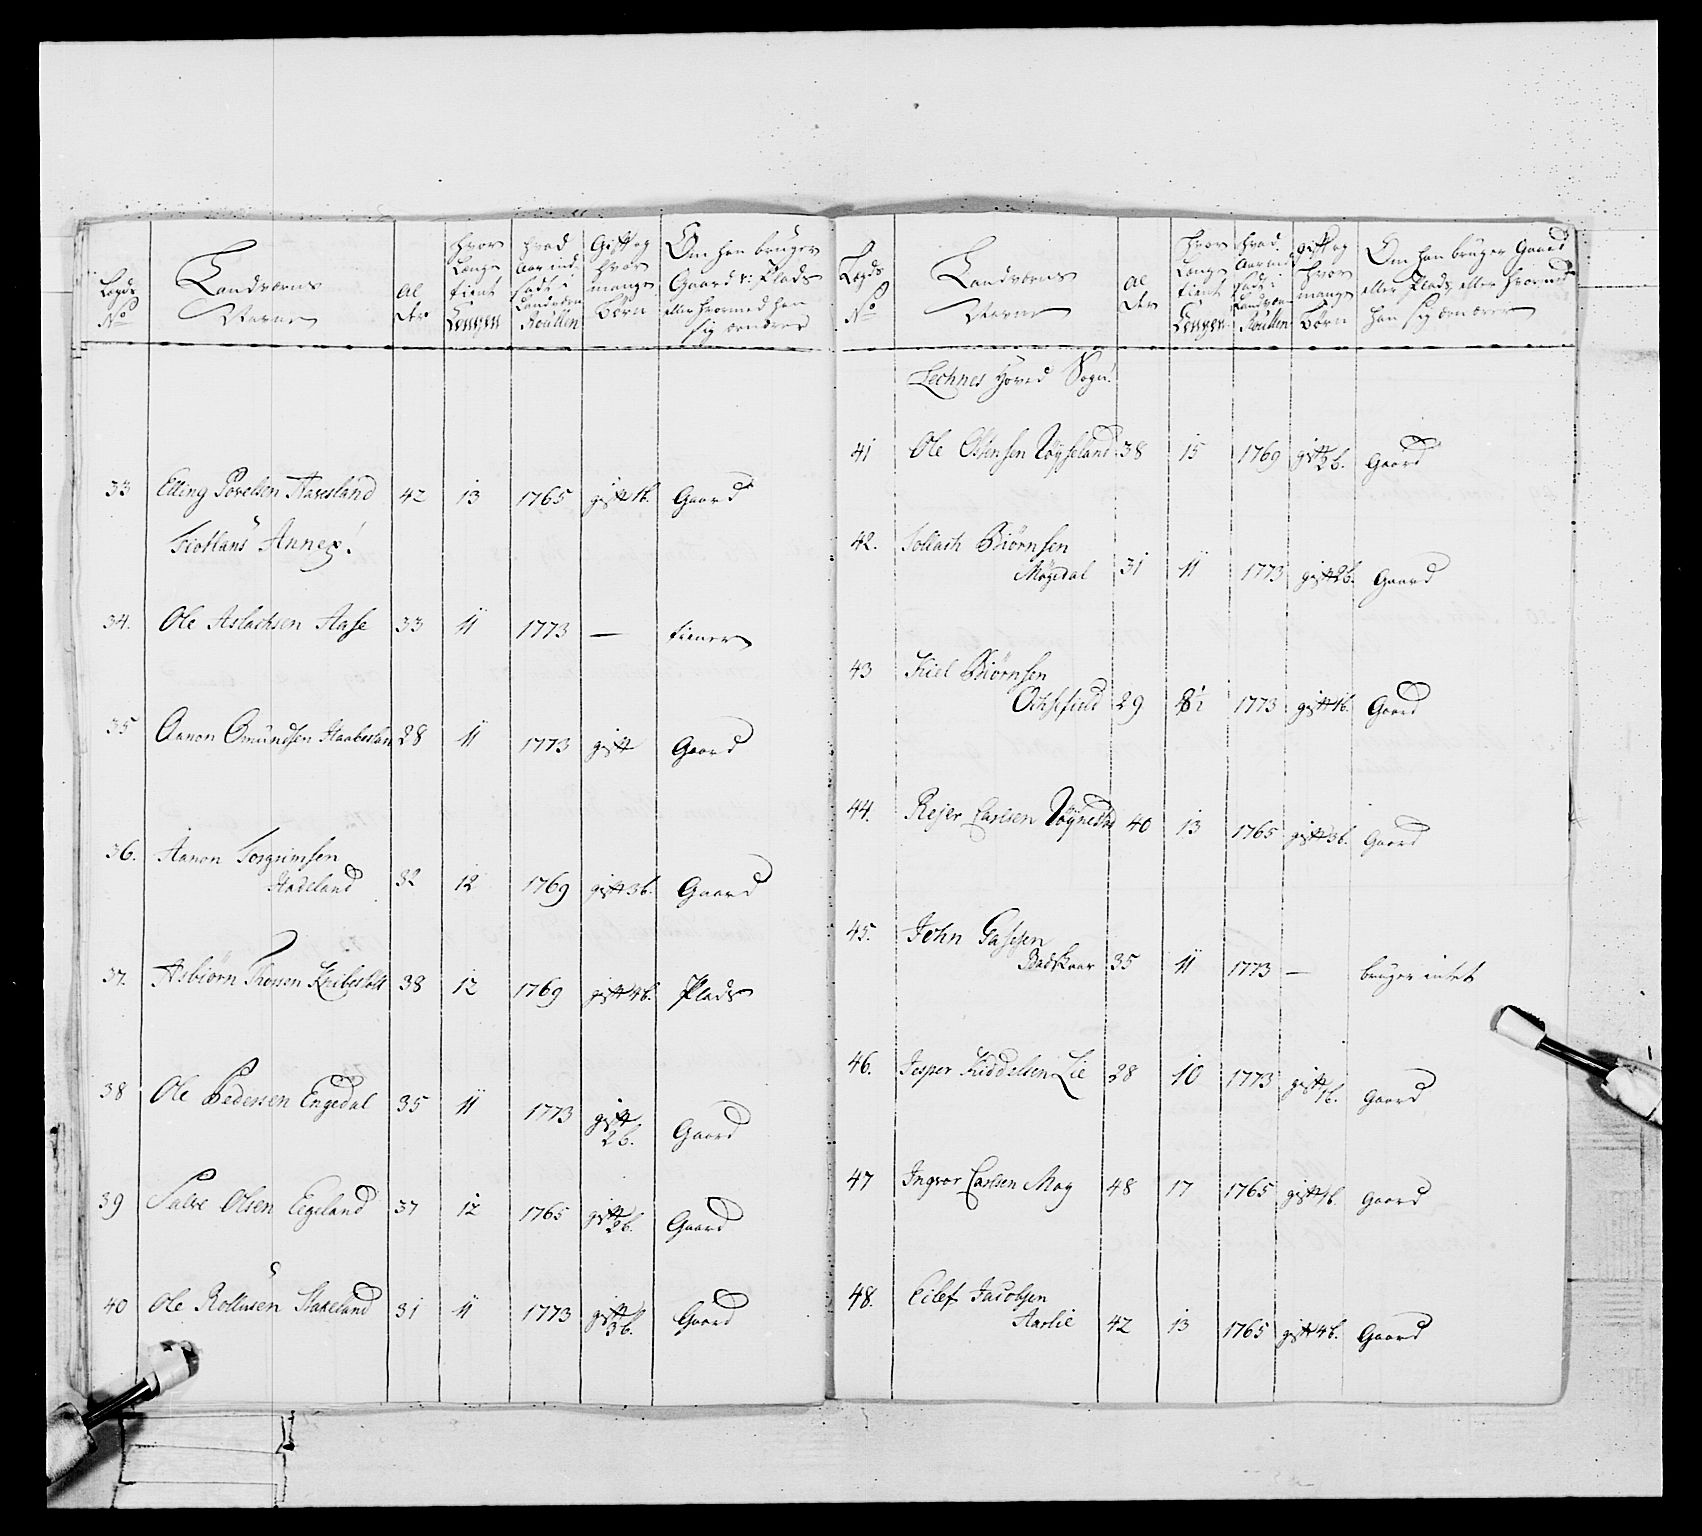 Lægds No
Landværns Navne
Al der
hvor Længe tient Kongen
hvad Aar ind sadt i Landværn Roullen
Gift og hvor mange Børn
Om han bruger Gaard e: Plads eller hvormed han sig ærnærer
33 Elling Povelsen Haaesland 42 13 1765 gift 1b. Gaard
Fiotlans Annex!
34. Ole Aslachsen Aase 33 11 1773 — tiener
35 Aanon Omundsen 28 11 1773 gift Gaard
36. Aanon Torgrimsen
Stadeland 32 12 1769 gift 3b. Gaard
37. Asbiörn 38 12 1769 gift 4b. Plads
38 Ole Pedersen Engedal 35 11 1773 gift 2b. Gaard
39 Salve Olsen Eegeland 37 12 1765 gift 2b. Gaard
40 Ole Rollusen Stakeland 31 11 1773 gift 3b. Gaard
Lægds No
Landværns Navne
Al der
hvor Længe tient Kongen
hvad Aar ind sadt i Landværn Roullen
gift og hvor mange Børn
Om han bruger Gaard eller Plads, eller hvormed han sig ærnærer
Lechnes Hoved Sogn!
41 Ole Ostensen Röyseland 38 15 1769 gift 2b. Gaard
42. Sollach Biörnsen
Möyedal 31 11 1773 gift 2b. Gaard
43 Kiel Biörnsen
Ochsefield 29 1773 gift 1b. Gaard
44. Rejer Carlsen 40 13 1765 gift 3b. Gaard
45. John
35 11 1773 — bruger intet
46. Jesper Kiddelsen Lie 28 10 1773 gift 1b. Gaard
47 Ingvor Carlsen Moy 48 17 1765 gift 1b. Gaard
48. Eilef Jacobsen
Aarlie 42 13 1765 gift 4b. Gaard